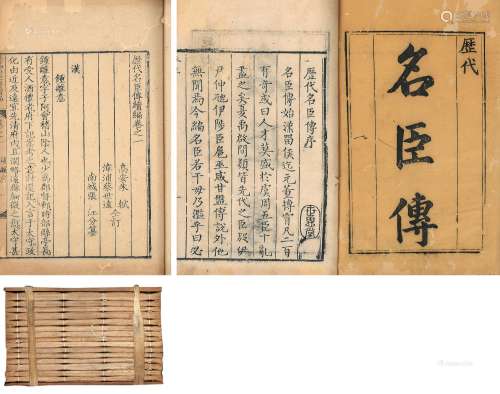 歷代
名臣傳
歷代名臣傳序
名臣傳始漢留侯迄元董摶霄凡二百
有奇或曰人才莫盛於虞周五臣十亂
孟之矣夏禹啟間類皆先代之臣殷伊
尹仲虺伊陟臣扈巫咸甘盤傅說外他
無聞焉今編名臣若干毋乃濫乎曰必
歷代名臣傳續編卷之一
高安朱軾
漳浦蔡世遠 仝訂
南城張江分纂
漢
鍾離意
鍾離意字子阿會稽山陰人也少為郡督郵時部縣亭長
有受人酒禮者府下記案考之意封還記入言于太守
化由近及遠宜先清府內且闊略遠縣細微之愆太守甚